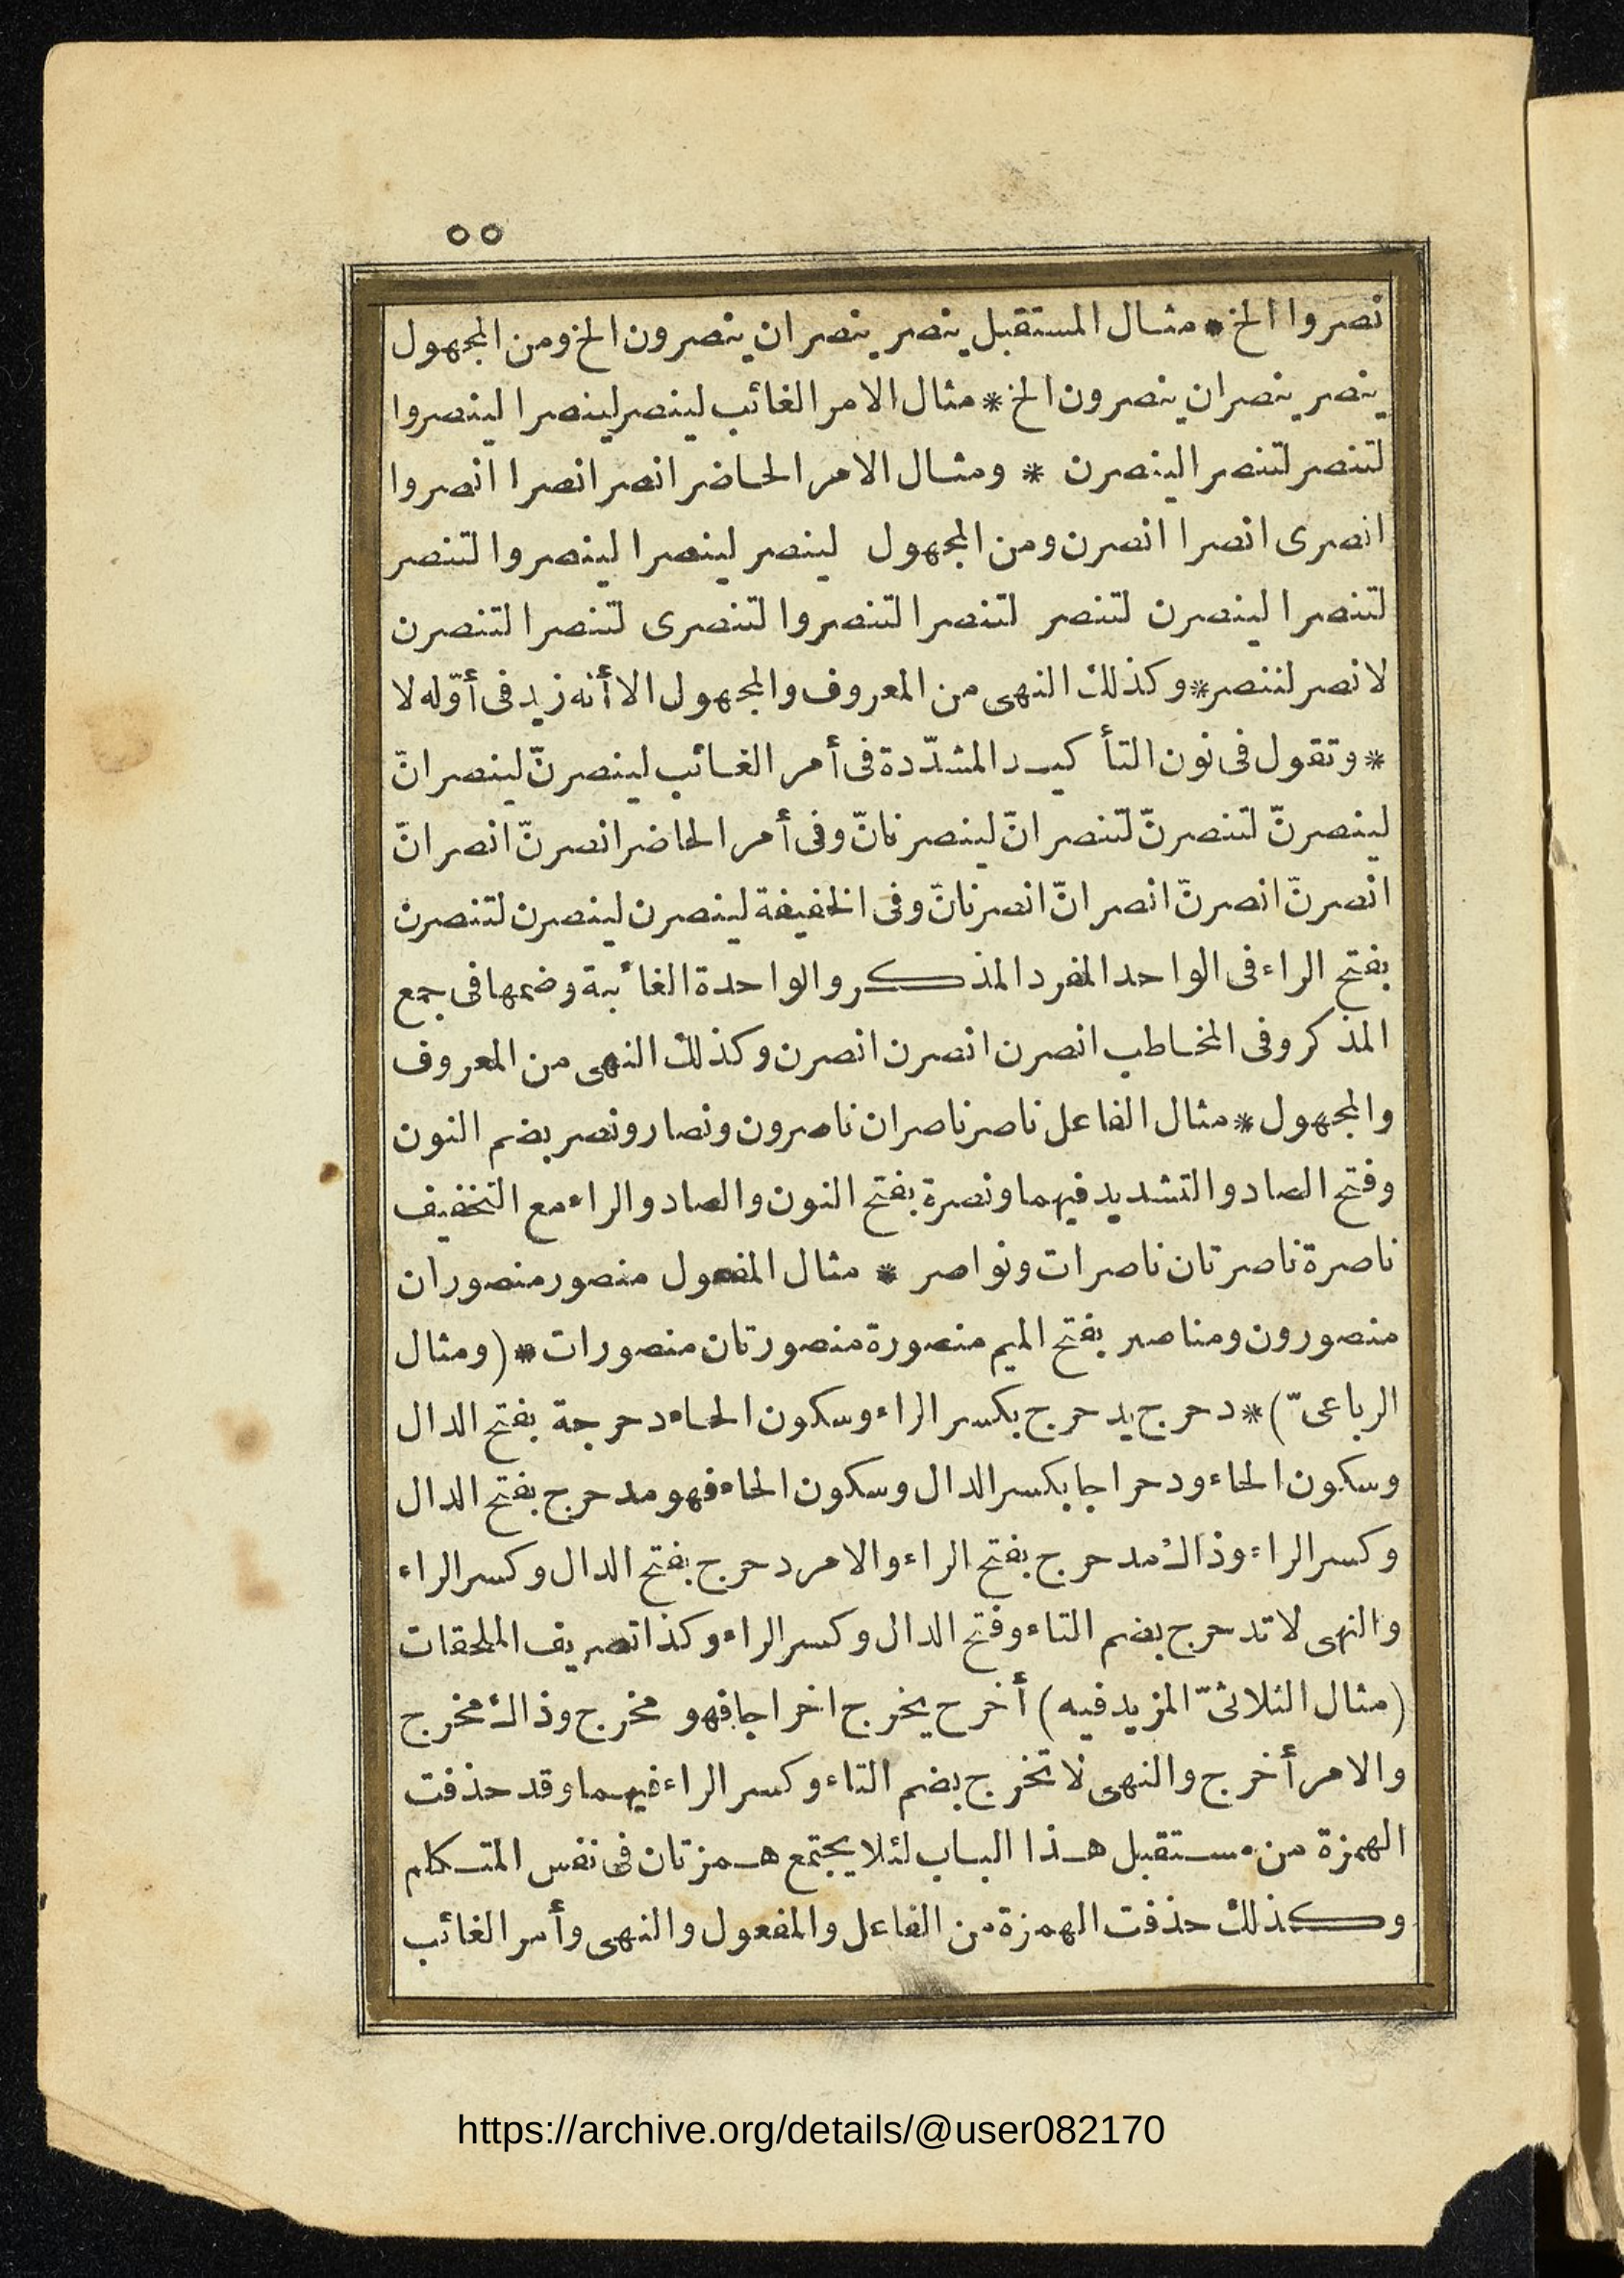 ٥٥
نصروا الخ * مثال المستقبل ينصر ينصران ينصرون الخ ومن المجهول
ينصر ينصران ينصرون الخ * مثال الامر الغائب لينصر لينصرا لينصروا
لتنصر لتنصرا لينصرن * ومثال الامر الحاضر انصر انصرا انصروا
انصرى انصرا انصرن ومن المجهول لينصر لينصرا لينصروا لتنصر
لتنصرا لينصرن لتنصر لتنصرا لتنصروا لتنصرى لتنصرا لتنصرن
لانصر لننصر * وكذلك النهى من المعروف والمجهول الا أنه زيد فى أوّله لا
* وتقول فى نون التأكيد المشدّدة فى أمر الغائب لينصرنّ لينصرانّ
لينصرنّ لتنصرنّ لتنصرانّ لينصرنانّ وفى أمر الحاضر انصرنّ انصرانّ
انصرنّ انصرنّ انصرانّ انصرنانّ وفى الخفيفة لينصرن لينصرن لتنصرن
بفتح الراء فى الواحد المفرد المذكر والواحدة الغائبة وضمها فى جمع
المذكر وفى المخاطب انصرن انصرن انصرن وكذلك النهى من المعروف
والمجهول * مثال الفاعل ناصر ناصران ناصرون ونصار ونصر بضم النون
وفتح الصاد والتشديد فيهما ونصرة بفتح النون والصاد والراء مع التخفيف
ناصرة ناصرتان ناصرات ونواصر * مثال المفعول منصور منصوران
منصورون ومناصر بفتح الميم منصورة منصورتان منصورات * (ومثال
الرباعىّ) * دحرج يدحرج بكسر الراء وسكون الحاء دحرجة بفتح الدال
وسكون الحاء ودحراجا بكسر الدال وسكون الحاء فهو مدحرج بفتح الدال
وكسر الراء وذاك مدحرج بفتح الراء والامر دحرج بفتح الدال وكسر الراء
والنهى لا تدحرج بضم التاء وفتح الدال وكسر الراء وكذا تصريف الملحقات
(مثال الثلاثىّ المزيد فيه) أخرج يخرج اخراجا فهو مخرج وذاك مخرج
والامر أخرج والنهى لا تخرج بضم التاء وكسر الراء فيهما وقد حذفت
الهمزة من مستقبل هذا الباب لئلا يجتمع همزتان فى نفس المتكلم
وكذلك حذفت الهمزة من الفاعل والمفعول والنهى وأمر الغائب
https://archive.org/details/@user082170